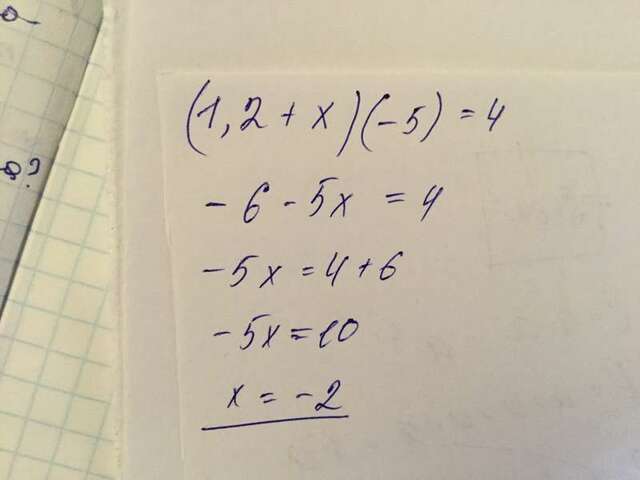 (1,2 + x)(-5) = 4
-6 - 5x = 4
-5x = 4 + 6
-5x = 10
x = -2